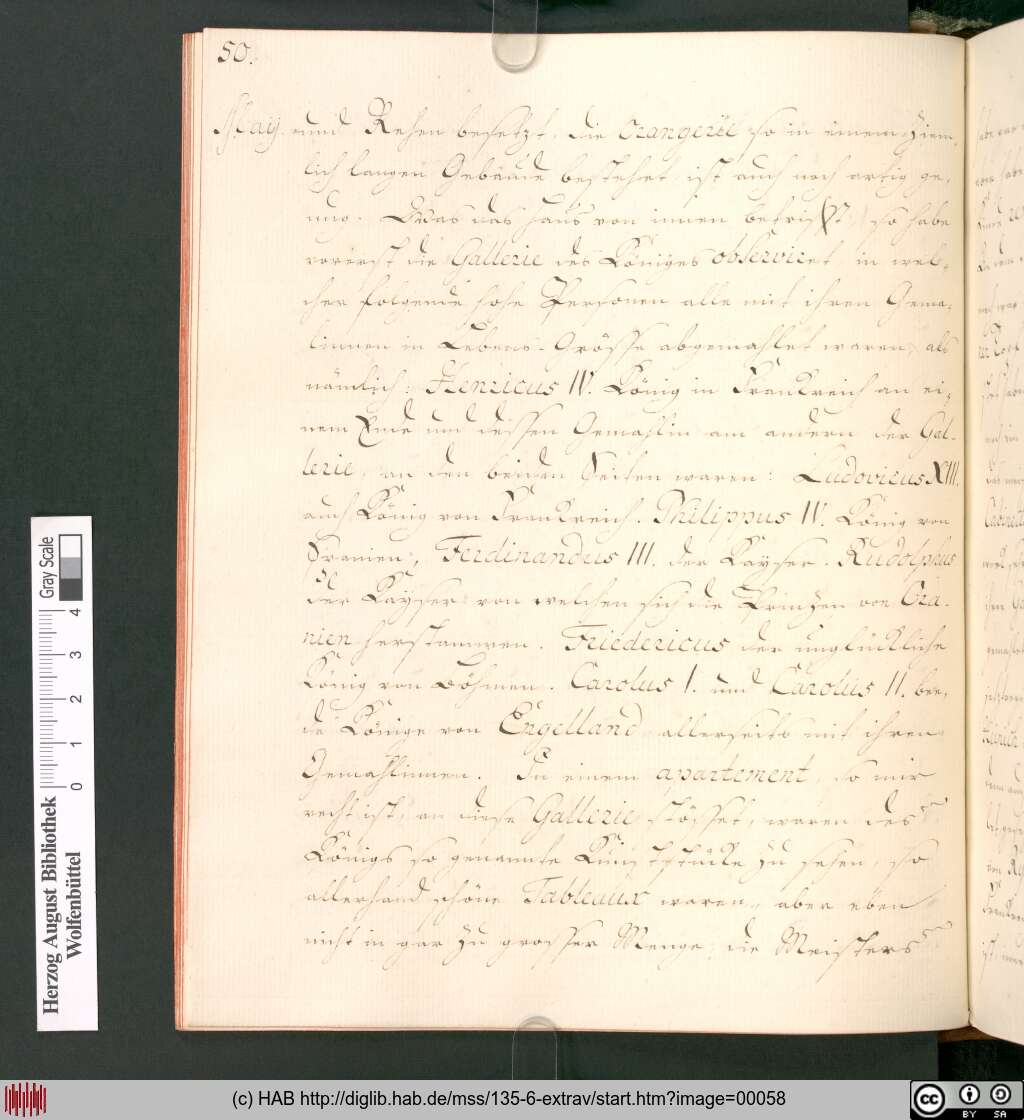 50.
May. und Rehen besetzt. die Orangerie so in einem ziem,
lich langen Gebäude bestehet, ist auch noch artig ge,
nug. Was das Haus von innen betrifft, so habe
vorerst die Gallerie des Königes observiret, in wel,
cher folgende hohe Personen alle mit ihren Gema,
linnen in Lebens-Grösse abgemahlet waren, als
nämlich: Henricus IV. König in Frankreich an ei,
nem Ende und dessen Gemahlin am andern der Gal-
lerie, an den beiden Seiten waren: Ludovicus XIII.
auch König von Frankreich. Philippus IV. König von
Spanien, Ferdinandus III. der Kayser. Rudolphus
der Kayser von welchen sich die Prinzen von Ora-
nien herstammen. Friedericus der unglückliche
König von Böhmen. Carolus I. und Carolus II. bey,
de Könige von Engelland allerseits mit ihren
Gemahlinnen. In einem apartement, so mir
recht ist, an diese Gallerie stösset, waren des
Königs so genannte zu sehen, so
allerhand schöne Tableaux waren, aber eben
nicht in gar zu grosser Menge, die Meisters
Gray Scale
0 1 2 3 4
Herzog August Bibliothek
Wolfenbüttel
(c) HAB http://diglib.hab.de/mss/135-6-extrav/start.htm?image=00058
cc BY SA